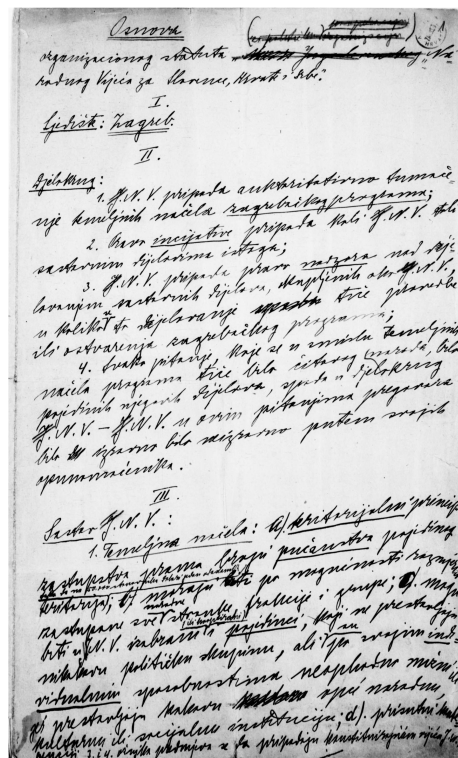 Osnova
organizacionog statuta „Na-
rodnog Vijeća za Slovence, Hrvate i Srbe".
I.
Sjedište: Zagreb.
II.
Djelokrug:
1. N. V. pripada autoritativno tumače-
nje temeljnih načela zagrebačkog programa;
2. Pravo incijative pripada koli N. V. toli
sastavnim dijelovima istoga;
3. N. V. pripada pravo nadzora nad dje-
lovanjem sastavnih dijelova, okupljenih oko N. V.
u koliko se to djelovanje tiče provedbe
ili ostvarenja zagrebačkog programa;
4. Svako pitanje, koje se u smislu temeljnih
načela programa tiče bilo čitavog naroda, bilo
pojedinih njegovih dijelova, spada u djelokrug
N. V. — N. V. u ovim pitanjima pregovara
bilo izravno bilo neizravno putem svojih
opunomoćenika.
III.
Sastav N. V.:
1. Temeljna načela: a) teritorijalni princip
zastupstva prema broju pučanstva pojedinog
teritorija; b) moraju biti po mogućnosti razmjerno
zastupane sve stranke, frakcije i grupe; c) mogu
biti u N. V. izabrani i pojedinci, koji ne predstavljaju
nikakvu političku skupinu, ali su po svojim indi-
vidualnim sposobnostima neophodno
predstavljaju kakovu opću narodnu,
kulturnu ili socijalnu instituciju; d)